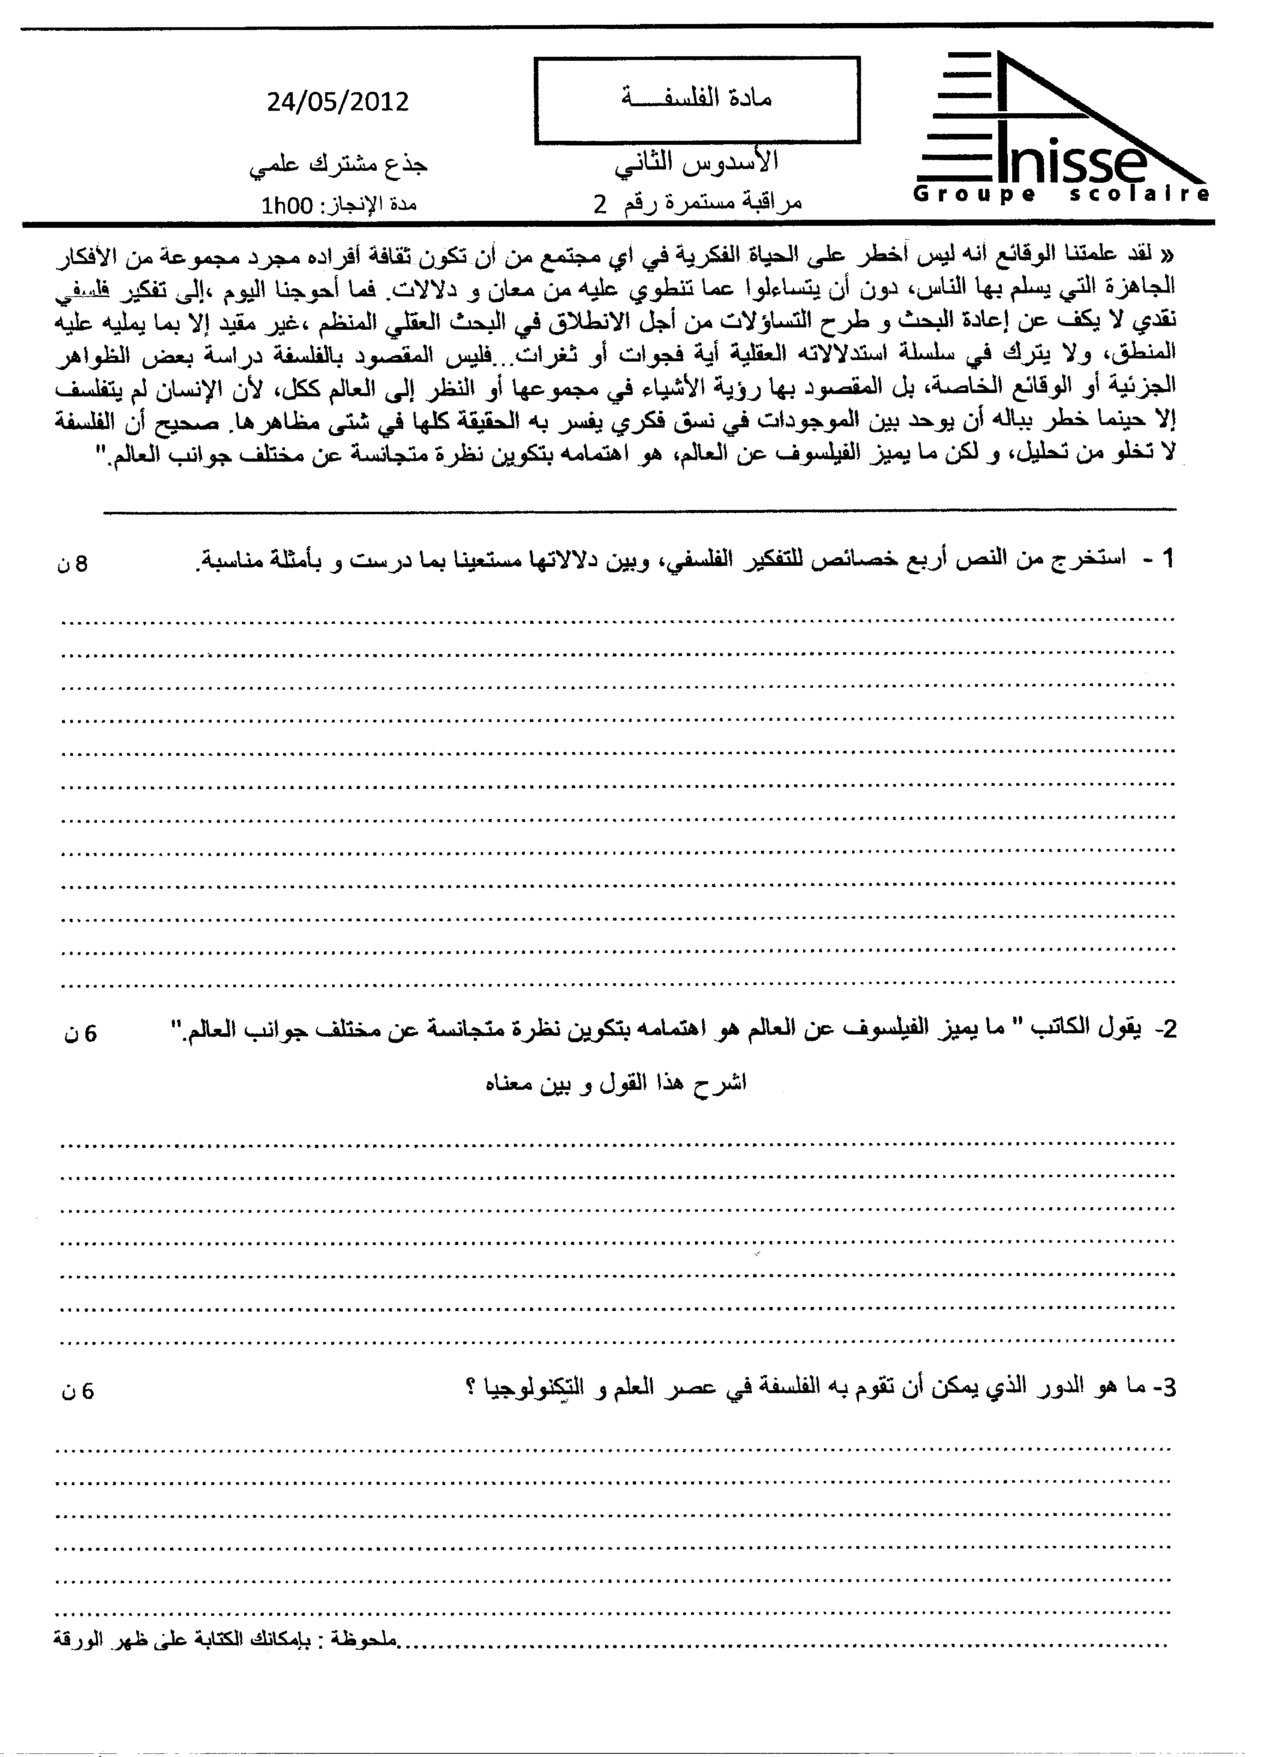 مادة الفلسفـــــة
24/05/2012
Anisse
Groupe scolaire
الأسدوس الثاني
جذع مشترك علمي
مراقبة مستمرة رقم 2
مدة الإنجاز: 1h00
« لقد علمتنا الوقائع أنه ليس أخطر على الحياة الفكرية في أي مجتمع من أن تكون ثقافة أفراده مجرد مجموعة من الأفكار
الجاهزة التي يسلم بها الناس، دون أن يتساءلوا عما تنطوي عليه من معان و دلالات. فما أحوجنا اليوم ،إلى تفكير فلسفي
نقدي لا يكف عن إعادة البحث و طرح التساؤلات من أجل الانطلاق في البحث العقلي المنظم ،غير مقيد إلا بما يمليه عليه
المنطق، ولا يترك في سلسلة استدلالاته العقلية أية فجوات أو ثغرات...فليس المقصود بالفلسفة دراسة بعض الظواهر
الجزئية أو الوقائع الخاصة، بل المقصود بها رؤية الأشياء في مجموعها أو النظر إلى العالم ككل، لأن الإنسان لم يتفلسف
إلا حينما خطر بباله أن يوحد بين الموجودات في نسق فكري يفسر به الحقيقة كلها في شتى مظاهرها. صحيح أن الفلسفة
لا تخلو من تحليل، و لكن ما يميز الفيلسوف عن العالم، هو اهتمامه بتكوين نظرة متجانسة عن مختلف جوانب العالم."
1 - استخرج من النص أربع خصائص للتفكير الفلسفي، وبين دلالاتها مستعينا بما درست و بأمثلة مناسبة. 8 ن
2- يقول الكاتب " ما يميز الفيلسوف عن العالم هو اهتمامه بتكوين نظرة متجانسة عن مختلف جوانب العالم." 6 ن
اشرح هذا القول و بين معناه
3- ما هو الدور الذي يمكن أن تقوم به الفلسفة في عصر العلم و التكنولوجيا ؟ 6 ن
ملحوظة : بإمكانك الكتابة على ظهر الورقة